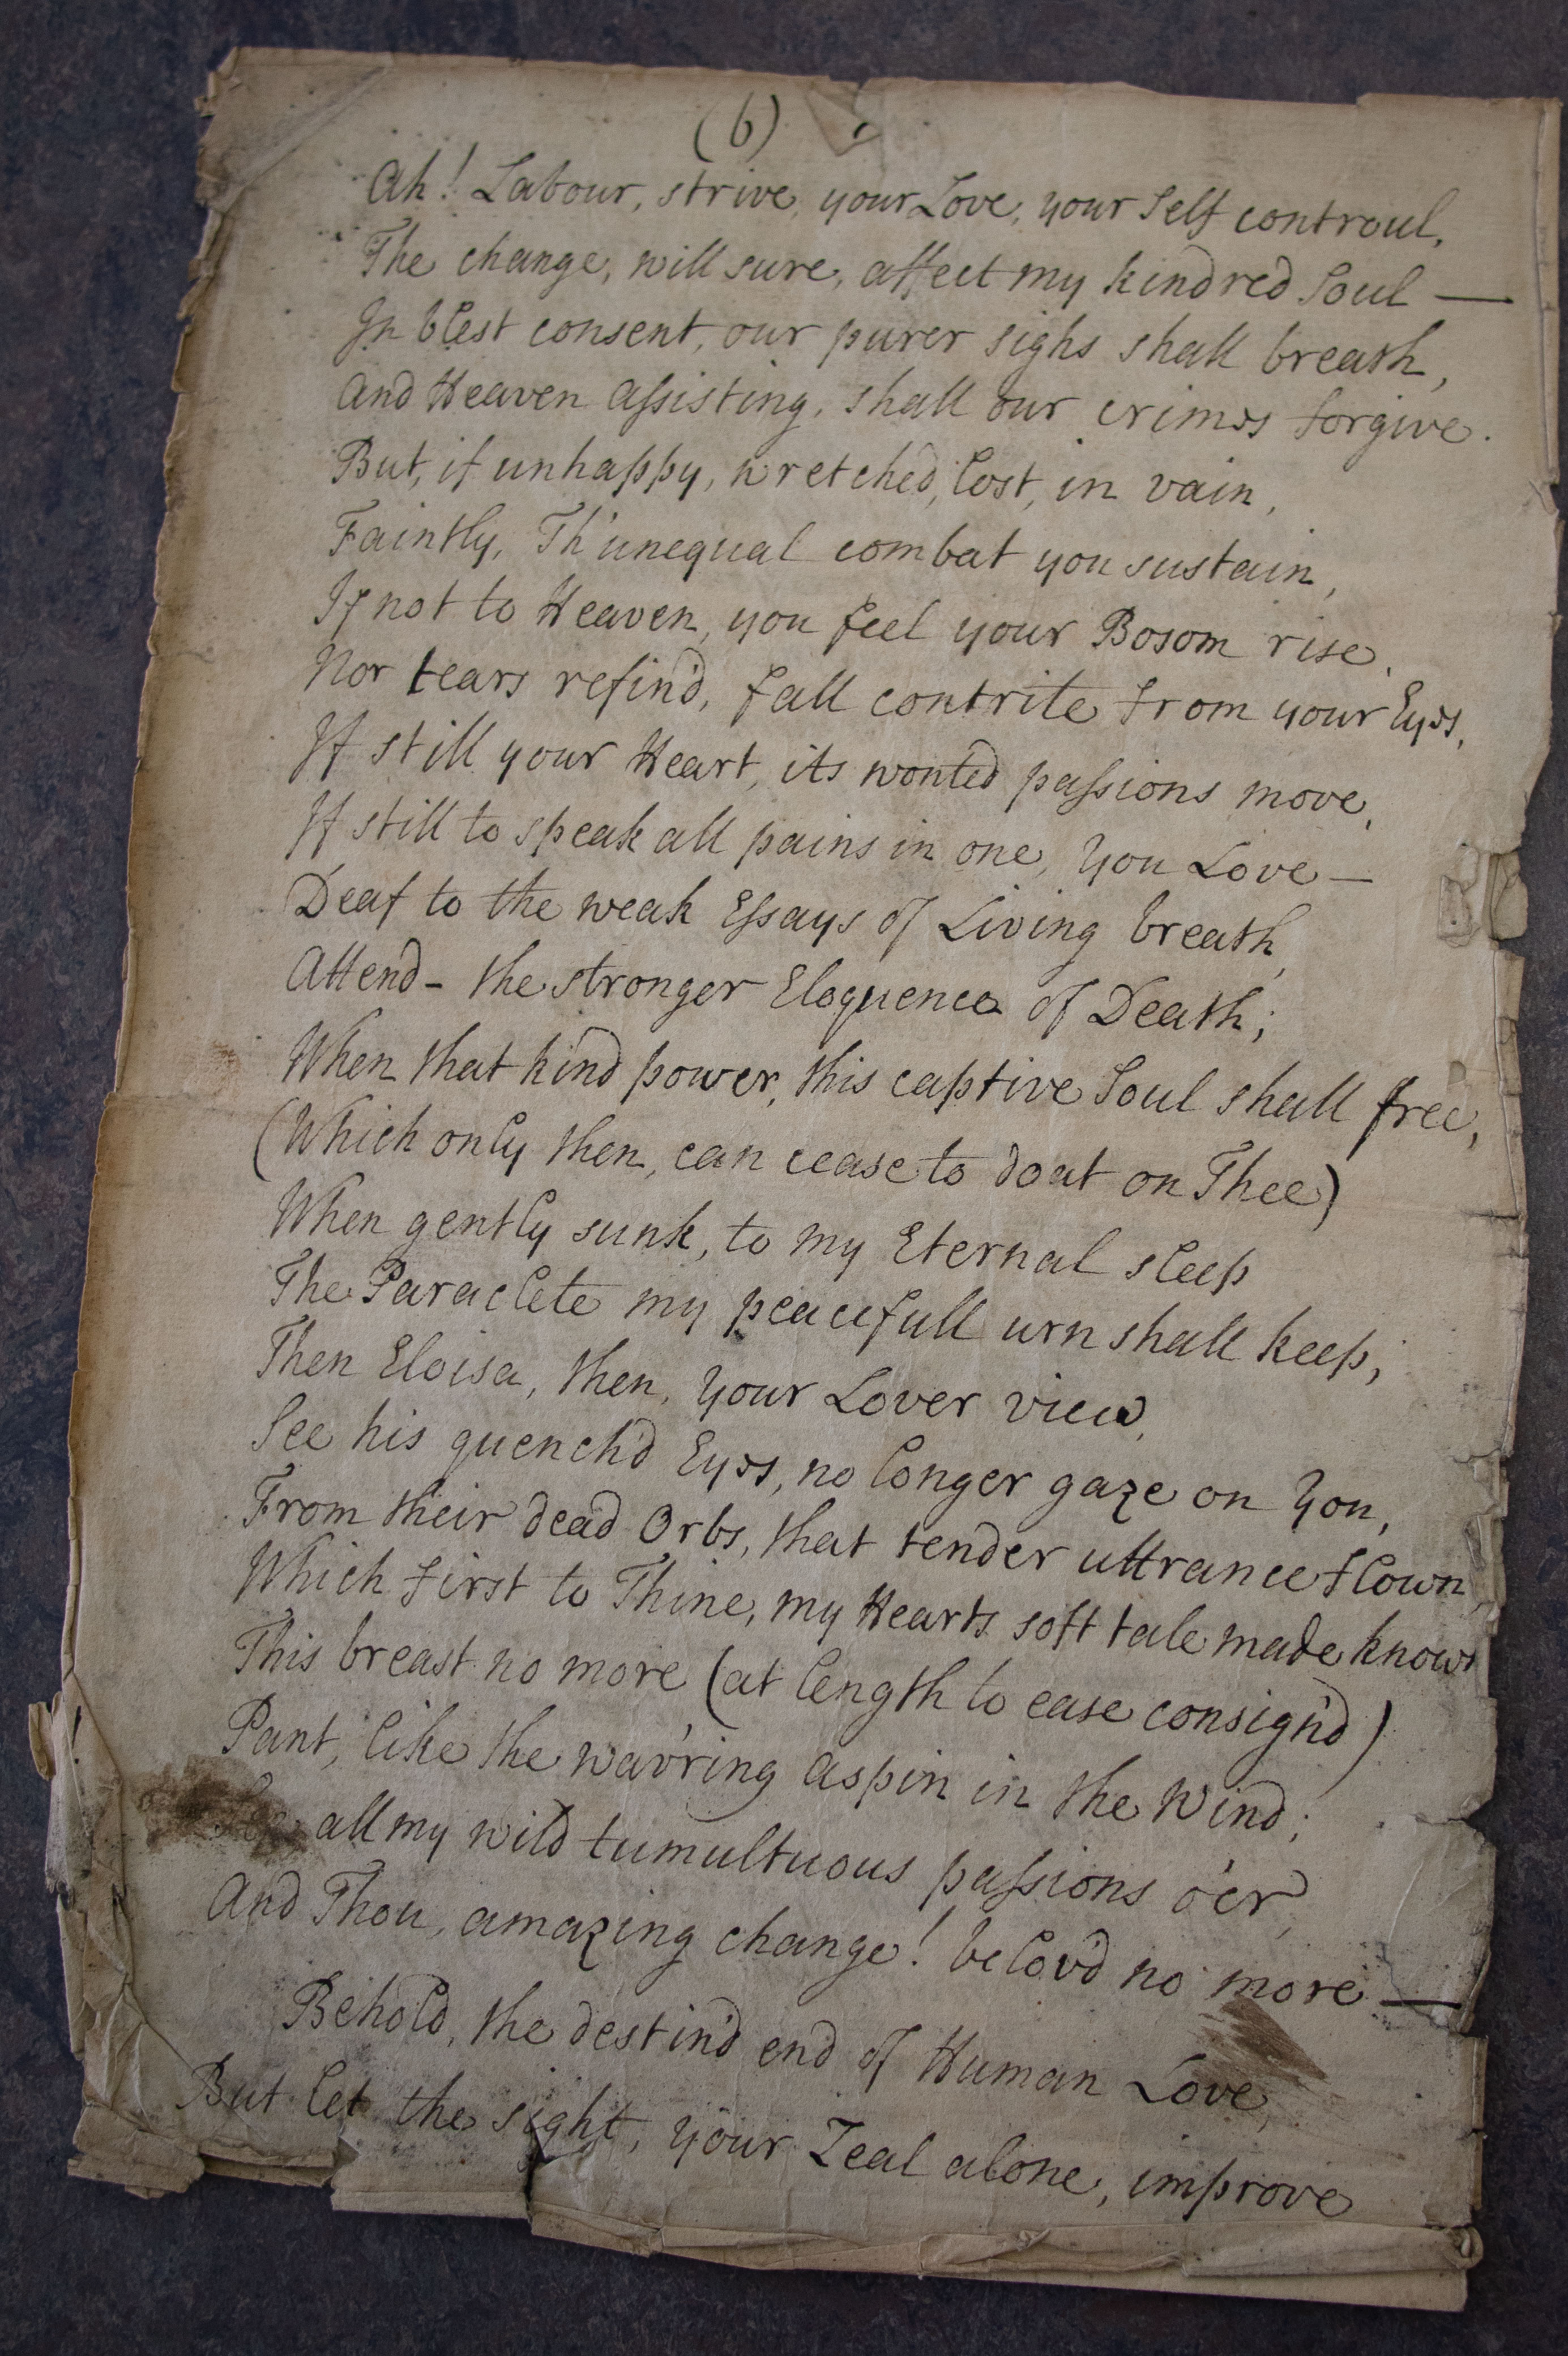 (6)
Ah! Labour, strive, your Love, your Self controul,
The change, will sure, affect my kindred Soul —
In blest consent, our purer sighs shall breath,
And Heaven Assisting, shall our crimes forgive.
But, if unhappy, wretched, lost, in vain,
Faintly, Th'unequal combat you sustain,
If not to Heaven, you feel your Bosom rise,
Nor tears refin'd, fall contrite from your Eyes,
If still your Heart, its wonted passions move,
If still to speak all pains in one, you Love —
Deaf to the weak Essays of Living breath,
Attend - the stronger Eloquence of Death;
When that kind power, this captive Soul shall free,
(Which only then, can cease to doat on Thee)
When gently sunk, to my Eternal sleep
The Paraclete my peacefull urn shall keep;
Then Eloisa, then, your Lover view,
See his quench'd Eyes, no longer gaze on you,
From their dead Orbs, that tender uttrance flown,
Which first to Thine, my Hearts soft tale made known
This breast no more (at length to ease consign'd)
Pant, like the wav'ring aspin in the Wind;
all my wild tumultuous passions o'er,
And Thou, amazing change! belov'd no more —
Behold, the destin'd end of Human Love,
But let the sight, your Zeal alone, improve